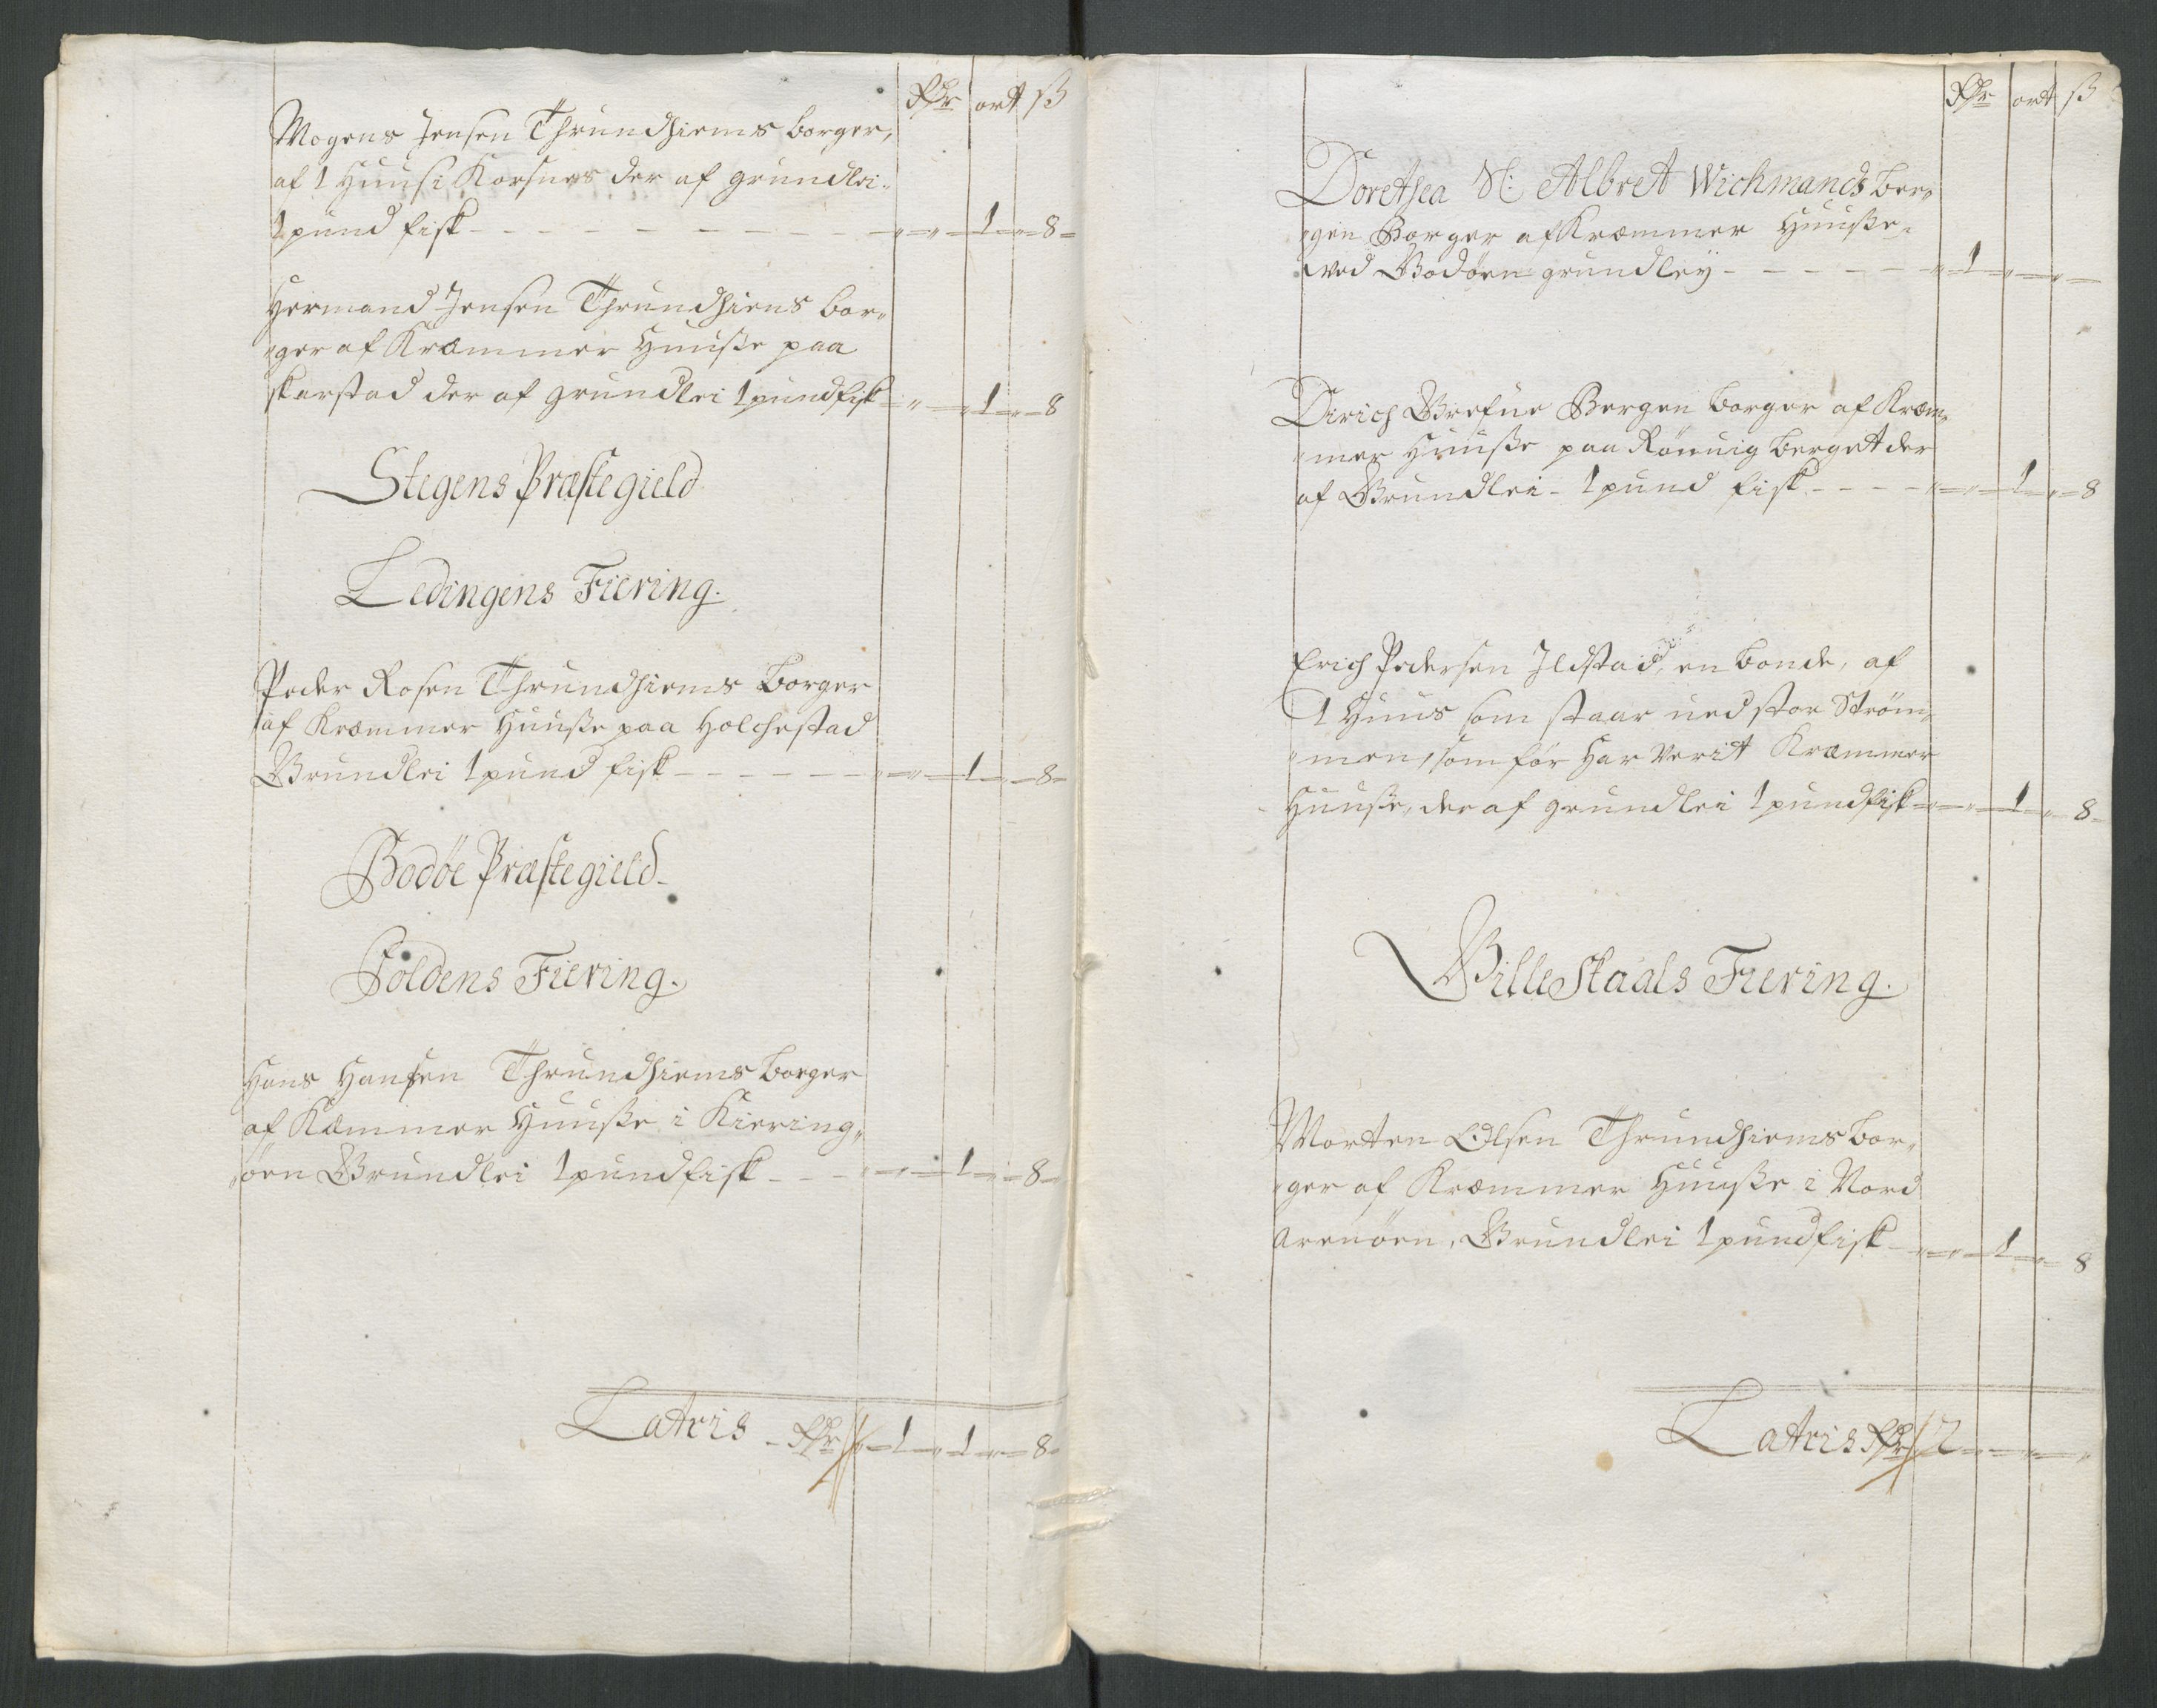 Rdr ort ß
Mogens Jensen Thrundhiems borger,
af 1 Huus i Korsnes der af grundlei
1 pund fisk - - - „ 1 „ 8
Hermand Jensen Thrundhiems bor„
„ger af Kræmmer Huuße paa
skarstad der af grundlei 1 pund fisk „ 1 „ 8
Stegens Præstegield
Lødingens Fiering.
Peder Rosen Thrundhiems Borger
af Kræmmer Huuße paa Holchestad
Grundlei 1 pund fisk - - - „ 1 „ 8
Bodøe Præstegield
Foldens Fiering.
Hans Hansen Thrundhiems Borger
af Kæmmer Huuße i Kiering„
„øen Grundlei 1 pund fisk - - - „ 1 „ 8
Lateris - Rdr 1 „ 1 „ 8
Rdr ort ß
Dorethea Sl: Albret Wichmands Ber„
„gen Borger af Kræmmer Huuße
ved Bodøen grundleÿ - - - 1 „ „
Dirich Grefue Bergen borger af Kræm„
„mer Huuße paa Rønuig berget der
af Grundlei - 1 pund fisk - - - „ 1 „ 8
Erich Pedersen Ildstad, en bonde, af
1 Huus som staar ued stor Strøm„
„men, som før har verit Kræmmer
Huuße, der af grundlei 1 pund fisk „ 1 „ 8
Gillestaals Fiering.
Morten Olsen Thrundhiems bor„
„ger af Kræmmer Huuße i Nord
arenøen, Grundlei 1 pund fisk „ 1 „ 8
Lateris Rdr 2 „ „